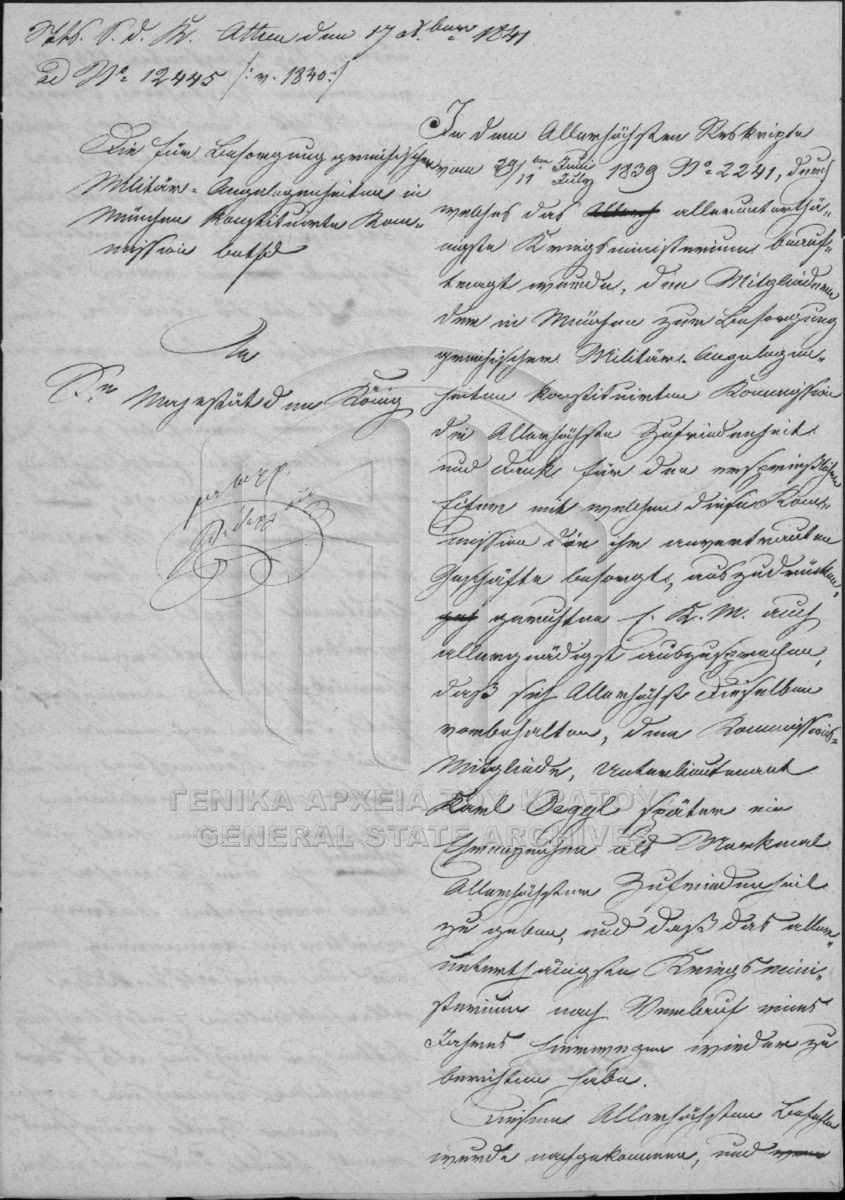 S. d. K. Athen den 17 Xber 1841
ad No 12445 /: v. 1840 :/
Die für Besorgung griechischer
Militär-Angelegenheiten in
München konstituirte Kom-
mission betfd
An
Sr Majestät den König
In dem Allerhöchsten Reskripte
vom 29/11 ten Juni/July 1839 No 2241, durch
welches das allerunterthä-
nigste Kriegsministerium beauf-
tragt wurde, den Mitgliedern
der in München zur Besorgung
griechischer Militär-Angelegen-
heiten konstituirten Kommission
die Allerhöchste Zufriedenheit
und Dank für den ersprießlichen
Eifer mit welchem diese Kom-
mission die ihr anvertrauten
Geschäfte besorgt, auszudrücken,
geruhten E. K. M. auch
allergnädigst auszusprechen,
daß sich Allerhöchst Dieselben
vorbehalten, dem Kommissions-
Mitgliede, Unterlieutenant
Karl Deggl später ein
Ehrenzeichen als Merkmal
Allerhöchster Zufriedenheit
zu geben, und daß das aller-
unterthänigste Kriegsmini-
sterium nach Verlauf eines
Jahres hierwegen wieder zu
berichten habe.
Diesem Allerhöchsten Befehle
wurde nachgekommen, und
ΓΕΝΙΚΑ ΑΡΧΕΙΑ ΤΟΥ ΚΡΑΤΟΥΣ
GENERAL STATE ARCHIVES